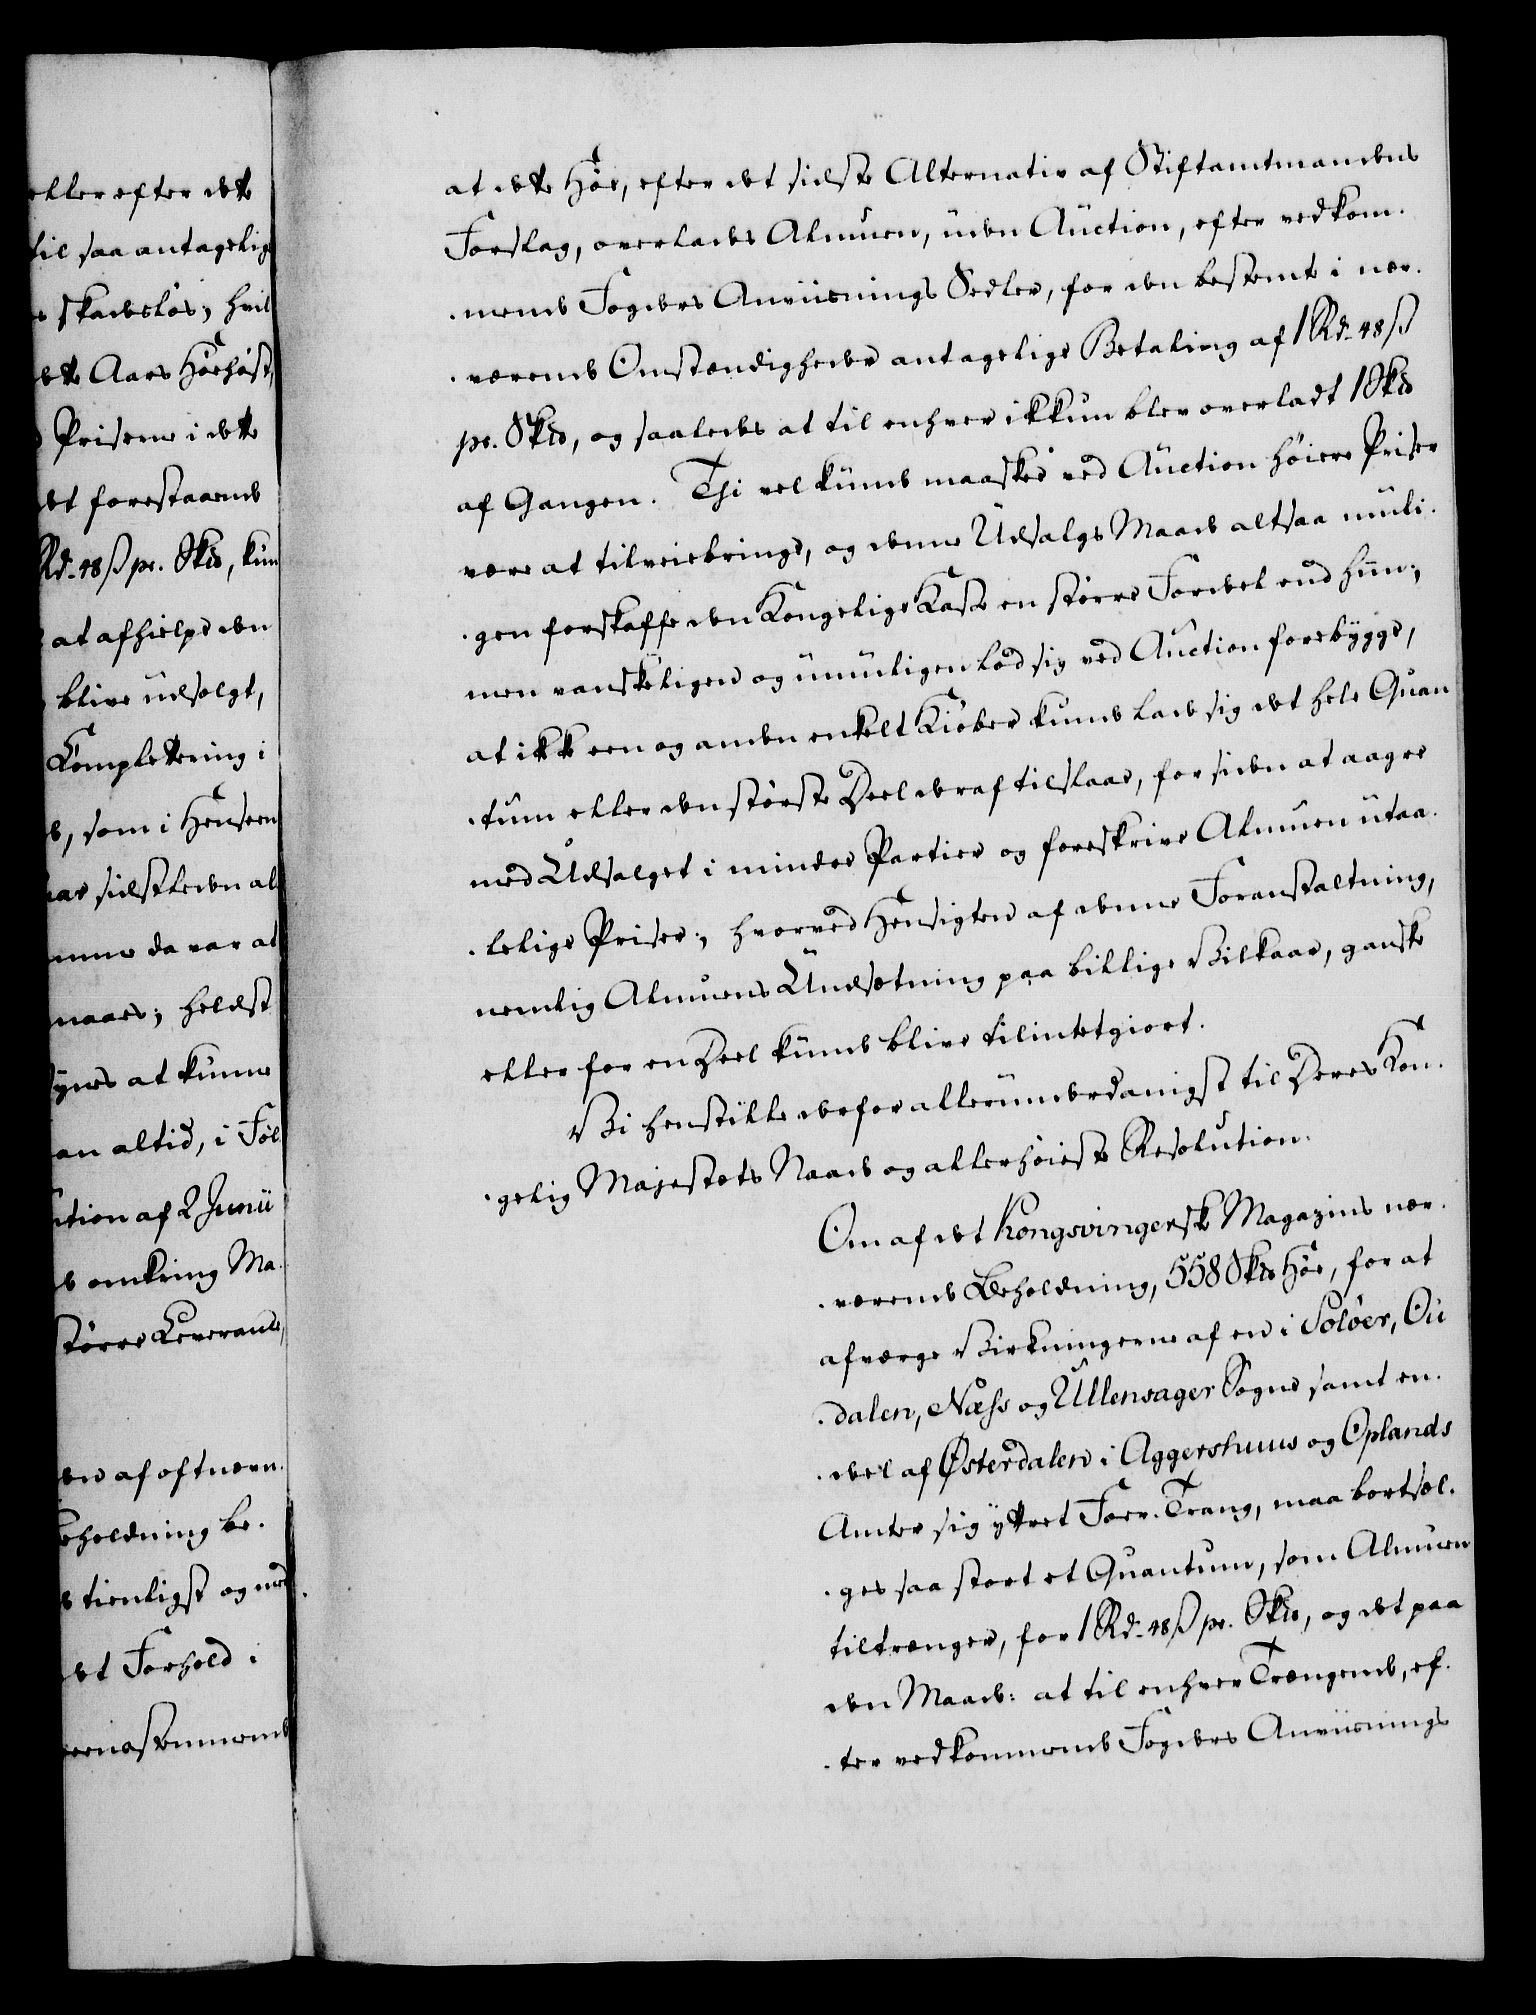 eller efter dette
til saa antagelige
skadesløs; hvil
dette Aars Høehøst,
Priserne i dette
det forestaaende
Rd. 48 ß pr. Skd, kun
at afhielpe den
blive udsolgt,
Completering i
som i Henseen
aar sidstleden al
da var at
naaes; heldst
synes at kunne
an altid, i Føl
ution af 2 Junii
omkring Ma-
større Leverance,
den af oftnævn-
Beholdning be-
tienligst og med
det Forhold i
at dette Høe, efter det sidste Alternativ af Stiftamtmandens
Forslag, overlades Almuen, uden Auction, efter vedkom-
-mende Fogders Anviisnings Sedler, for den bestemte i nær-
-værende Omstændigheder antagelige Betaling af 1 Rd. 48 ß
pr. Skd, og saaledes at til enhver ikkun blev overladt 1 Skd
af Gangen. Thi vel kunde maaskee ved Auction høiere Priser
være at tilveiebringe, og denne Udsalgs Maade altsaa muli-
-gen forskaffe den Kongelige Kasse en større Fordel end hiin;
men vanskeligen og umuligen lod sig ved Auction forebygge,
at ikke een og anden enkelt Kiøber kunde lade sig det hele Quan
-tum eller den største Deel deraf tilslaae, for siden at aagre
med Udsalget i mindre Partier og foreskrive Almuen utaa-
-lelige Priser; hvorved Hensigten af denne Foranstaltning,
nemlig Almuens Undsætning paa billige Vilkaar, ganske
eller for en Deel kunde blive tilintetgiort.
Vi henstille derfor allerunderdanigst til Deres Kon-
-gelig Majestæts Naade og allerhøieste Resolution:
Om af det Kongsvingerske Magazins nær-
-værende Beholdning, 558 Skd Høe, for at
afværge Virkningerne af en i Soløer, Ou
-dalen, Næss og Ullensager Sogne samt en-
-deel af Østerdalen i Aggershuus og Oplands
Amter sig yttret Foer-Trang, maa bortsæl-
-ges saa stort et Quantum, som Almuen
tiltrænger, for 1 Rd. 48 ß pr. Skd, og det paa
den Maade: at til enhver Trængende, ef-
-ter vedkommende Fogders Anviisnings